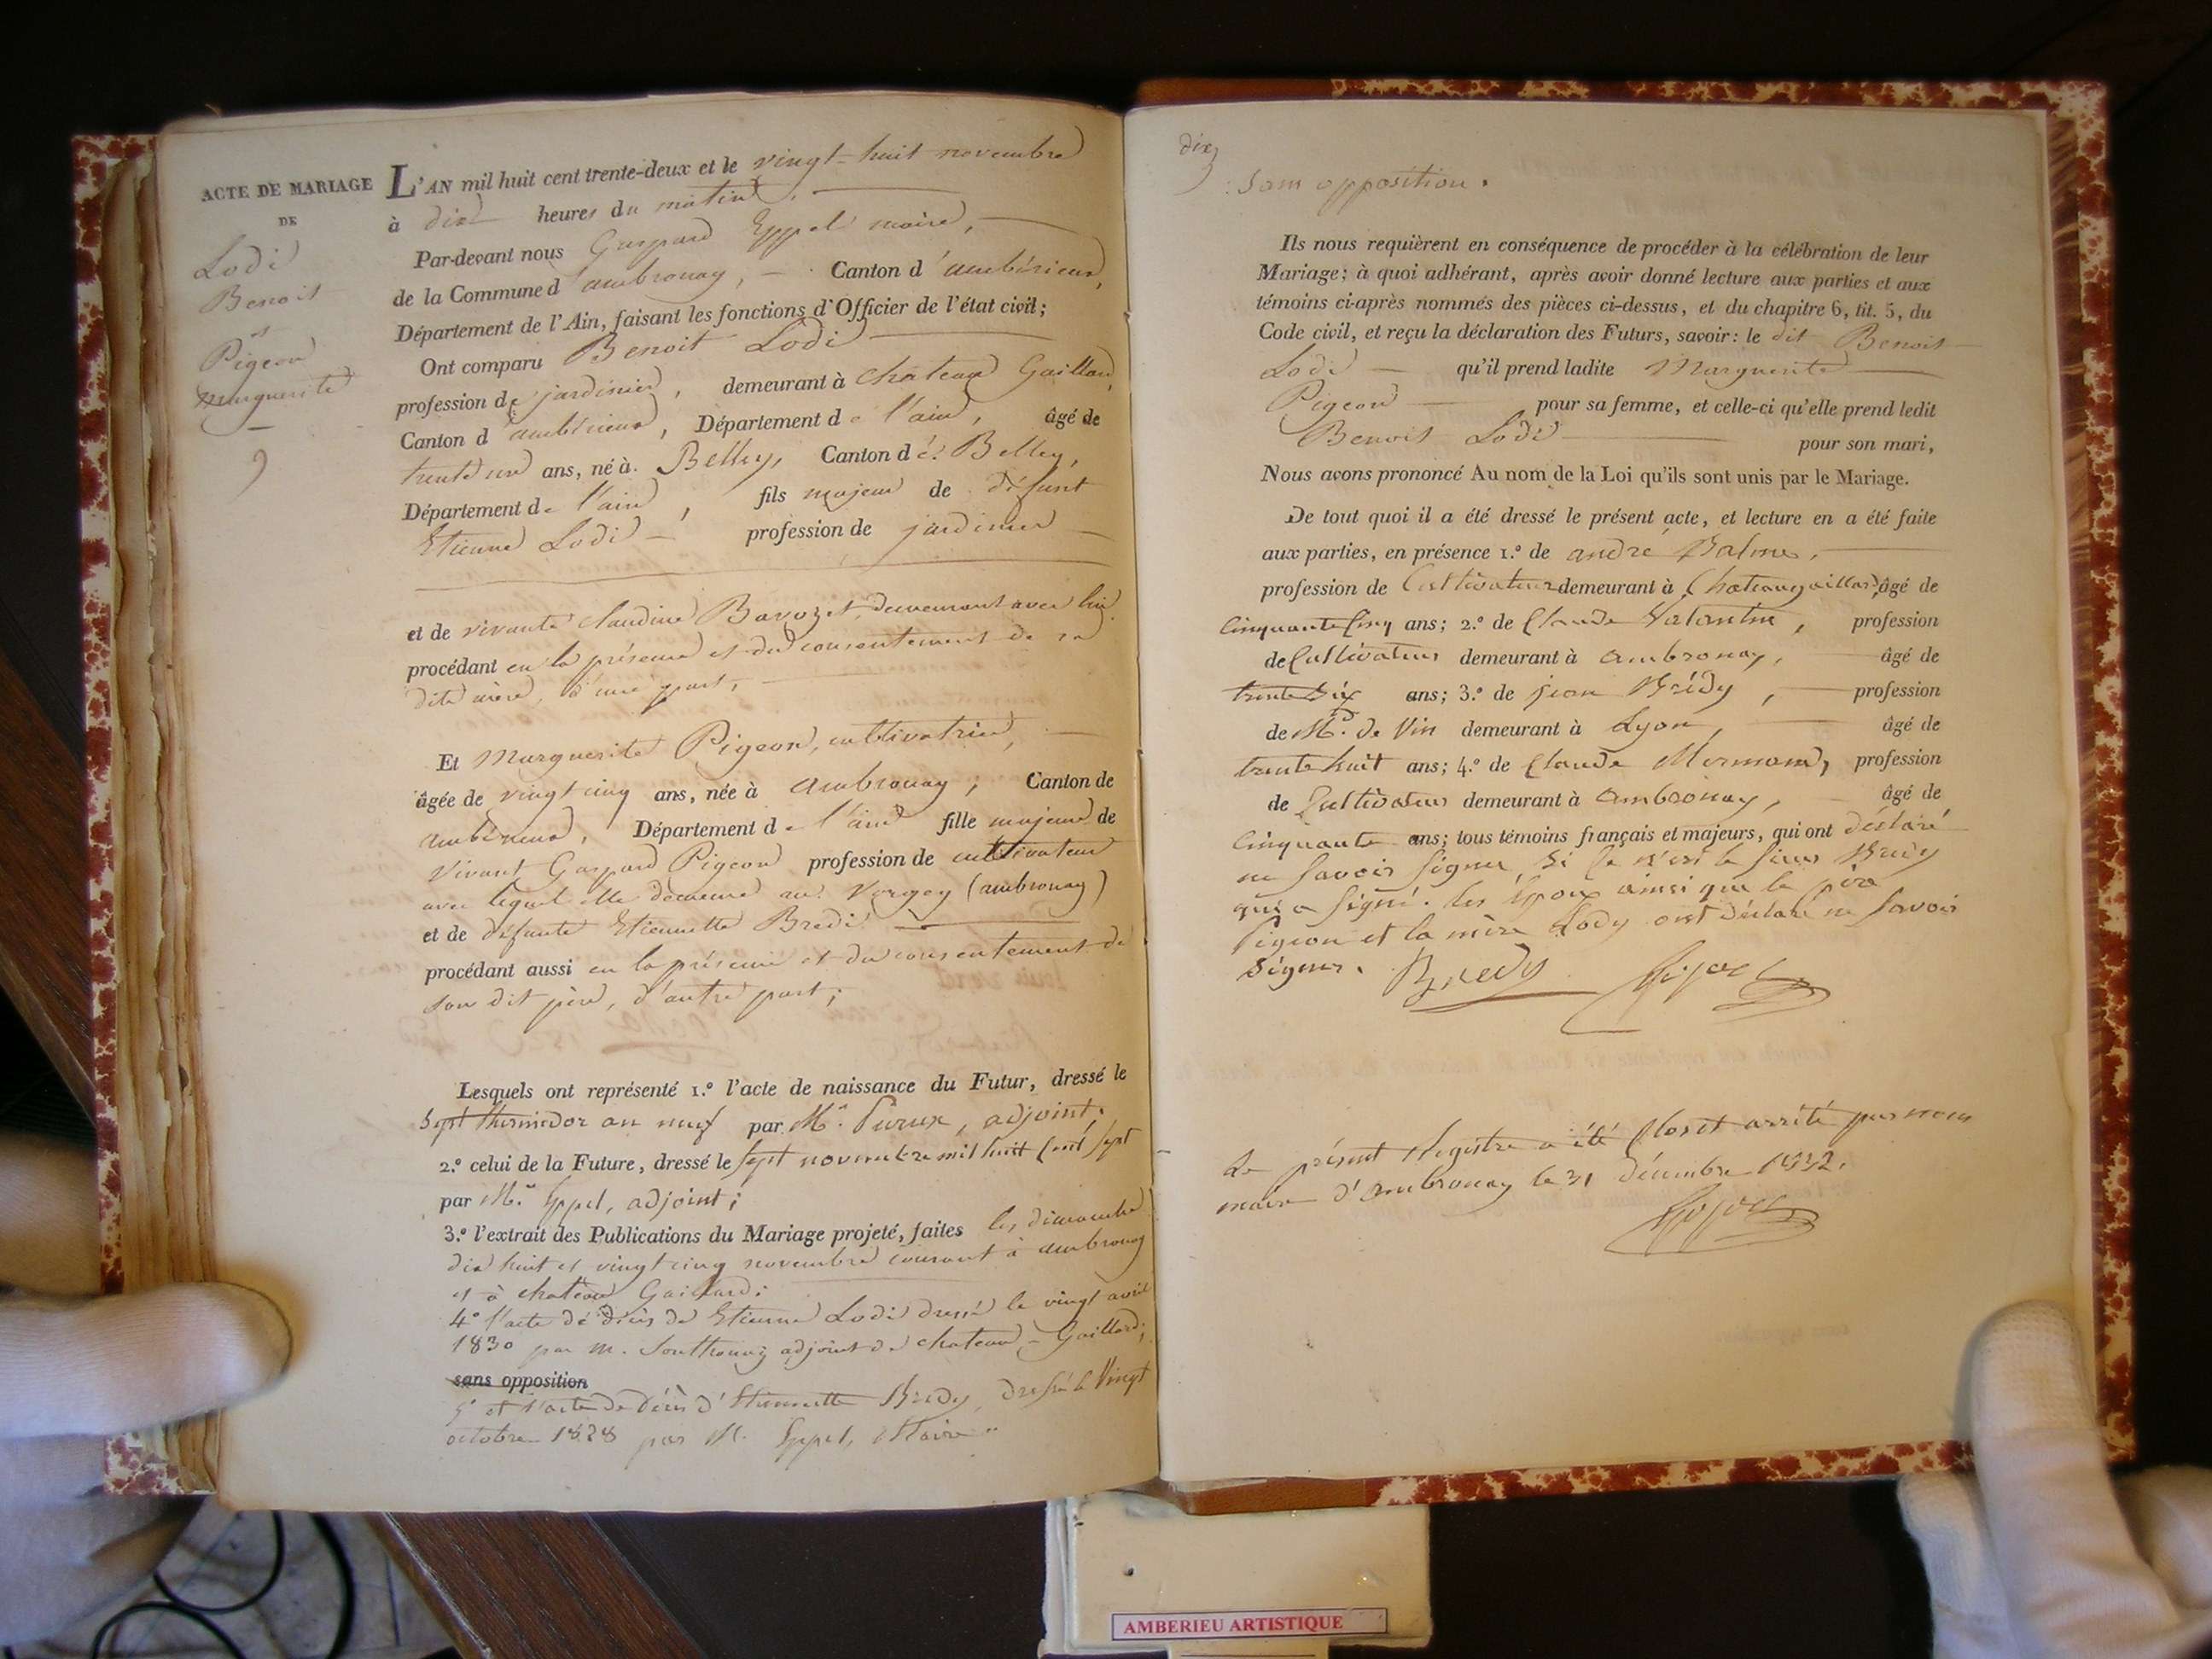 ACTE DE MARIAGE
DE
Lodi
Benoit
et
Pigeon
Marguerite
L'AN mil huit cent trente-deux et le vingt-huit novembre
à dix heures du matin,
Par-devant nous Gaspard Eppel maire,
de la Commune d'ambronay, Canton d'ambérieux,
Département de l'Ain, faisant les fonctions d'Officier de l'état civil;
Ont comparu Benoit Lodi
profession de jardinier, demeurant à chateau Gaillard,
Canton d'ambérieux, Département de l'ain, âgé de
trente un ans, né à Belley, Canton de Belley,
Département de l'ain, fils majeur de défunt
Etienne Lodi profession de jardinier
et de vivante claudine Bavozet, demeurant avec lui
procédant en la présence et du consentement de sa
dite mère, d'une part,
Et Marguerite Pigeon, cultivatrice,
âgée de vingt cinq ans, née à ambronay, Canton de
ambérieux, Département de l'ain fille majeure de
vivant Gaspard Pigeon profession de cultivateur
avec lequel elle demeure au Vorgey (ambronay)
et de défunte Etiennette Bredi
procédant aussi en la présence et du consentement de
son dit père, d'autre part;
Lesquels ont représenté 1.° l'acte de naissance du Futur, dressé le
Sept thermidor an neuf par Mr. adjoint;
2.° celui de la Future, dressé le sept novembre mil huit cent sept
par Mr. Eppel, adjoint;
3.° l'extrait des Publications du Mariage projeté, faites les dimanche
dix huit et vingt cinq novembre courant à ambronay
et à chateau Gaillard;
4° l'acte de décès de Etienne Lodi dressé le vingt avril
1830 par m. adjoint de chateau-Gaillard;
sans opposition
5° et l'acte de décès d'Etiennette Bredy, dressé le Vingt
octobre 1828 par M. Eppel, Maire
dix
sans opposition.
Ils nous requièrent en conséquence de procéder à la célébration de leur
Mariage; à quoi adhérant, après avoir donné lecture aux parties et aux
témoins ci-après nommés des pièces ci-dessus, et du chapitre 6, tit. 5, du
Code civil, et reçu la déclaration des Futurs, savoir: le dit Benoit
Lodi qu'il prend ladite Marguerite
Pigeon pour sa femme, et celle-ci qu'elle prend ledit
Benoit Lodi pour son mari,
Nous avons prononcé Au nom de la Loi qu'ils sont unis par le Mariage.
De tout quoi il a été dressé le présent acte, et lecture en a été faite
aux parties, en présence 1.° de andré Balme,
profession de Cultivateur demeurant à Chateaugaillard, âgé de
Cinquante Cinq ans; 2.° de Claude Valantin, profession
de Cultivateur demeurant à Ambronay, âgé de
trente six ans; 3.° de jean Brédy, profession
de Md. de Vin demeurant à Lyon, âgé de
trente huit ans; 4.° de Claude Mermand, profession
de Cultivateur demeurant à Ambronay, âgé de
Cinquante ans; tous témoins français et majeurs, qui ont déclaré
ne savoir signer, Si Ce n'est le sieur Bredy
qui a signé. les époux ainsi que le père
Pigeon et la mère Lody ont déclaré ne savoir
Signer. Bredy
Le présent Registre a été Clos et arrêté par nous
maire d'Ambronay le 31 décembre 1832.
AMBERIEU ARTISTIQUE